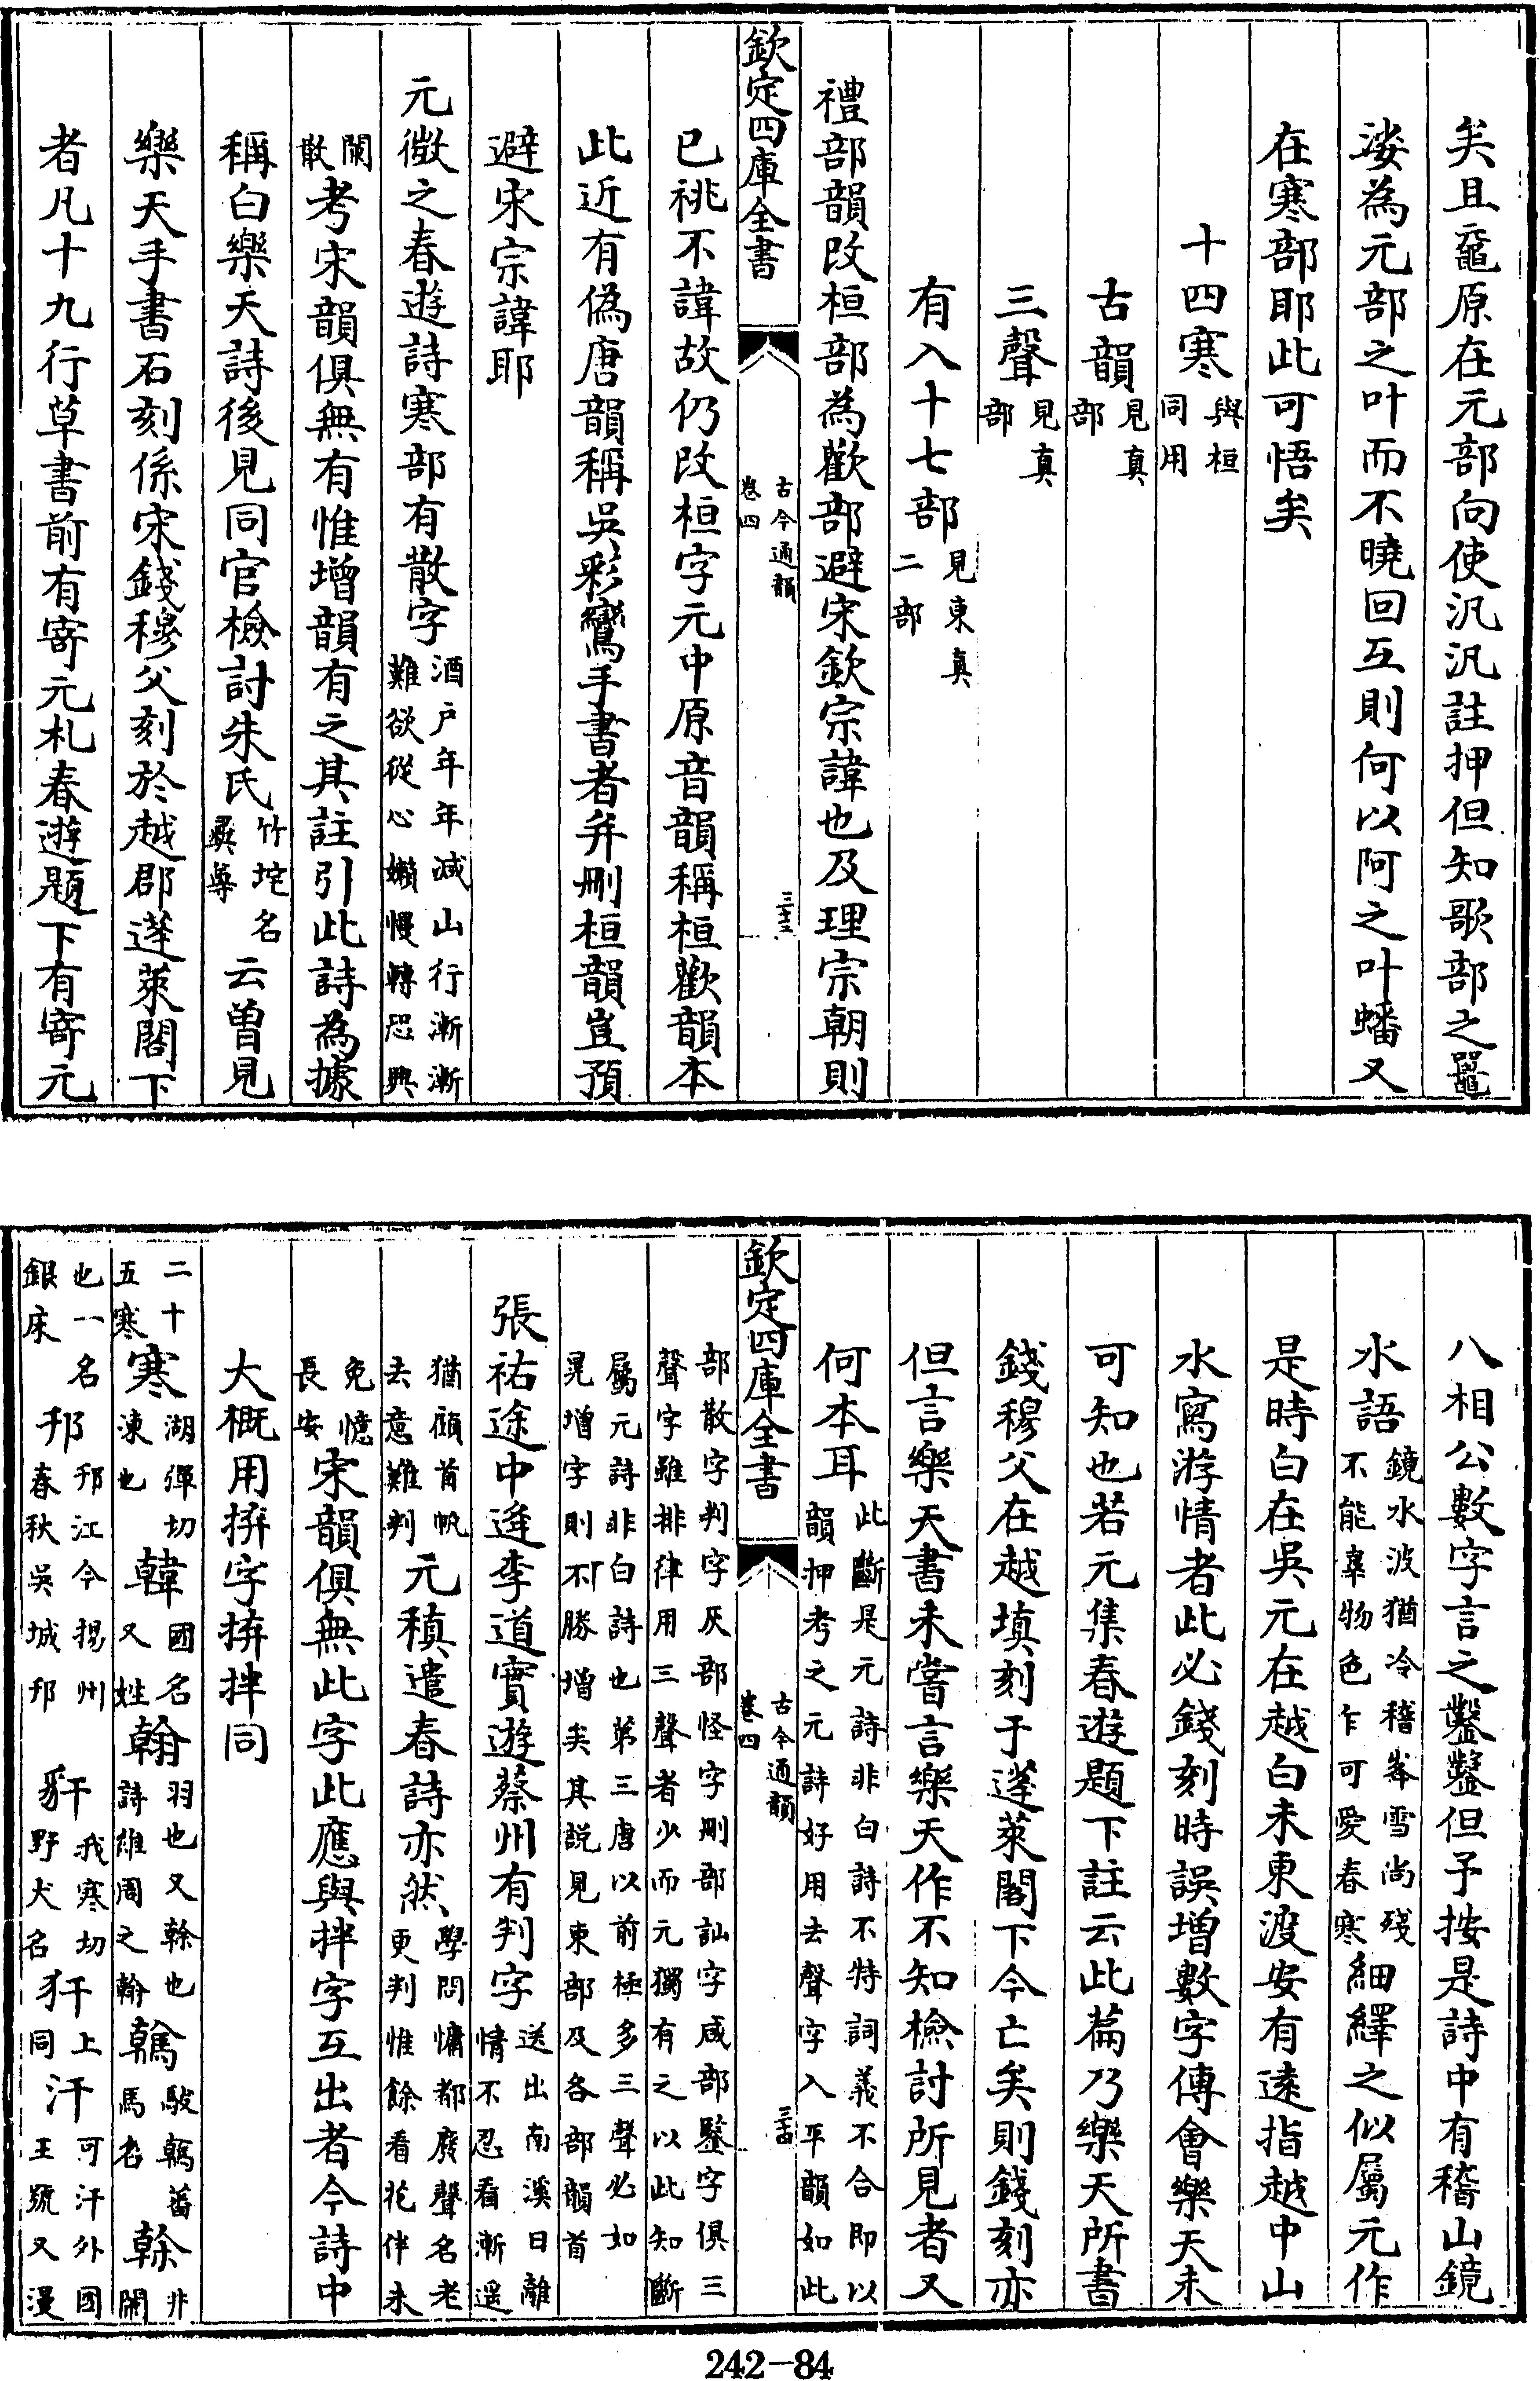 矣且黿原在元部向使汎汎註押但知歌部之鼉
娑為元部之叶而不曉回互則何以阿之叶蟠又
在寒部耶此可悟矣
十四寒與桓同用
古韻見真部
三聲見真部
有入十七部見東真二部
禮部韻改桓部為歡部避宋欽宗諱也及理宗朝則
欽定四庫全書
古今通韻
卷四
三十三
已祧不諱故仍改桓字元中原音韻稱桓歡韻本
此近有偽唐韻稱吳彩鸞手書者并刪桓韻豈預
避宋宗諱耶
元微之春遊詩寒部有散字酒户年年減山行漸漸難欲從心嬾慢轉恐興
闌散考宋韻俱無有惟增韻有之其註引此詩為據
稱白樂天詩後見同官檢討朱氏竹垞名彛尊云曾見
樂天手書石刻係宋錢穆父刻於越郡蓬萊閣下
者凡十九行草書前有寄元札春遊題下有寄元
八相公數字言之鑿鑿但予按是詩中有稽山鏡
水語鏡水波猶冷稽峯雪尚殘不能辜物色乍可愛春寒細繹之似屬元作
是時白在吳元在越白未東渡安有遠指越中山
水寫游情者此必錢刻時誤增數字傅會樂天未
可知也若元集春遊題下註云此篇乃樂天所書
錢穆父在越填刻于蓬萊閣下今亡矣則錢刻亦
但言樂天書未嘗言樂天作不知檢討所見者又
何本耳此斷是元詩非白詩不特詞義不合即以韻押考之元詩好用去聲字入平韻如此
欽定四庫全書
古今通韻
卷四
三十四
部散字判字灰部怪字刪部訕字咸部鑒字俱三聲字雖排律用三聲者少而元獨有之以此知斷
屬元詩非白詩也第三唐以前極多三聲必如晃增字則不勝增矣其説見東部及各部韻首
張祐途中逢李道實遊蔡州有判字送出南溪日離情不忍看漸遥
猶顧首帆去意難判元稹遣春詩亦然學問慵都廢聲名老更判惟餘看花伴未
免憶長安宋韻俱無此字此應與拌字互出者今詩中
大概用拚字拚拌同
二十五寒寒湖彈切凍也韓國名又姓翰羽也又榦也詩維周之翰鶾駇鶾蕃馬名榦井闌
也一名銀床邗邗江今揚州春秋吳城邗豻我寒切野犬名犴上同汗可汗外國王號又漫
242-84